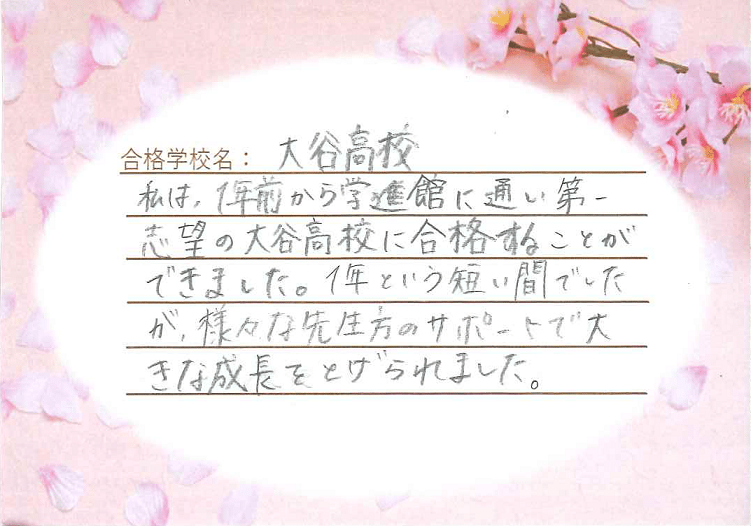 合格学校名： 大谷高校
私は、1年前から学進館に通い第一
志望の大谷高校に合格することが
できました。1年という短い間でした
が、様々な先生方のサポートで大
きな成長をとげられました。